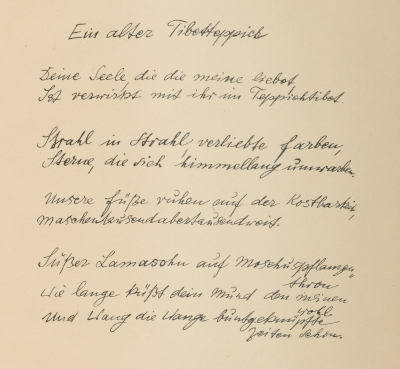 Ein alter Tibetteppich
Deine Seele, die die meine liebet,
Ist verwirkt mit ihr im Teppichtibet.
Strahl in Strahl, verliebte Farben,
Sterne, die sich himmellang umwarben.
Unsere Füße ruhen auf der Kostbarkeit,
Maschentausendabertausendweit.
Süßer Lamasohn auf Moschuspflanzen-
thron
Wie lange küßt dein Mund den meinen
wohl
Und Wang die Wange buntgeknüpfte
Zeiten schon.